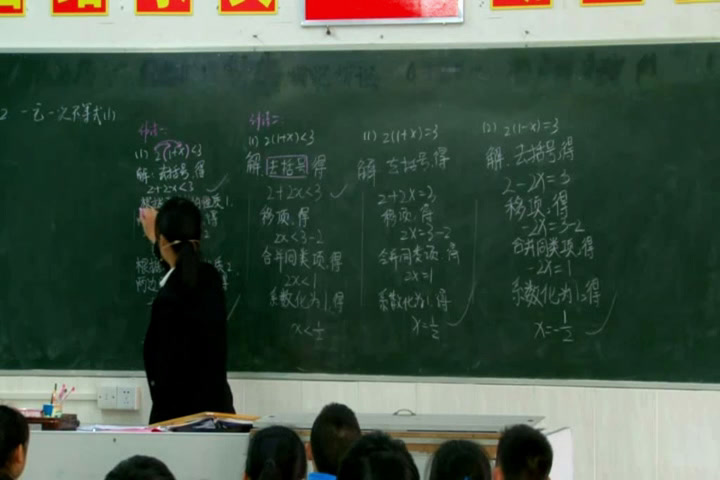 2 一元一次不等式(1)
(1) 2(1+x)<3
解:去括号,得
2+2x<3
(1) 2(1+x)<3
解:去括号,得
2+2x<3
移项,得
2x<3-2
合并同类项,得
2x<1
系数化为1,得
x<1/2
(1) 2(1+x)=3
解:去括号,得
2+2x=3
移项,得
2x=3-2
合并同类项,得
2x=1
系数化为1,得
x=1/2
(2) 2(1-x)=3
解:去括号,得
2-2x=3
移项,得
-2x=3-2
合并同类项,得
-2x=1
系数化为1,得
x=-1/2